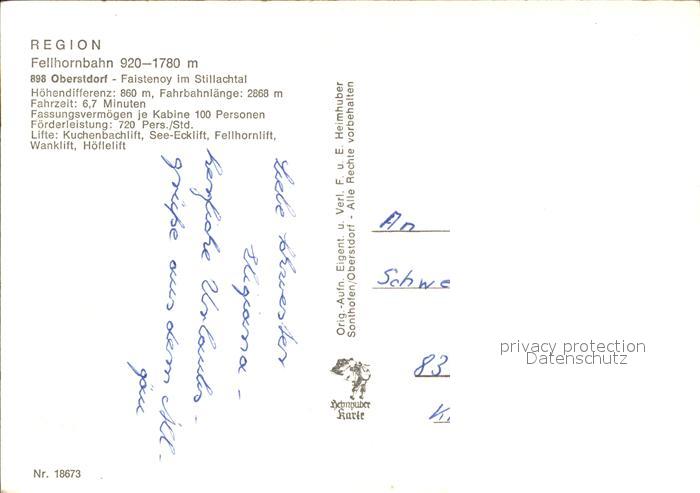 REGION
Fellhornbahn 920—1780 m
898 Oberstdorf - Faistenoy im Stillachtal
Höhendifferenz: 860 m, Fahrbahnlänge: 2868 m
Fahrzeit: 6,7 Minuten
Fassungsvermögen je Kabine 100 Personen
Förderleistung: 720 Pers./Std.
Lifte: Kuchenbachlift, See-Ecklift, Fellhornlift,
Wanklift, Höflelift
Liebe Schwester
herzliche Urlaubs-
grüße aus dem All-
gäu
Orig.-Aufn. Eigent. u. Verl. F. u. E. Heimhuber
Sonthofen/Oberstdorf - Alle Rechte vorbehalten
An
Schwe
83
K.
privacy protection
Datenschutz
Heimhuber
Karte
Nr. 18673